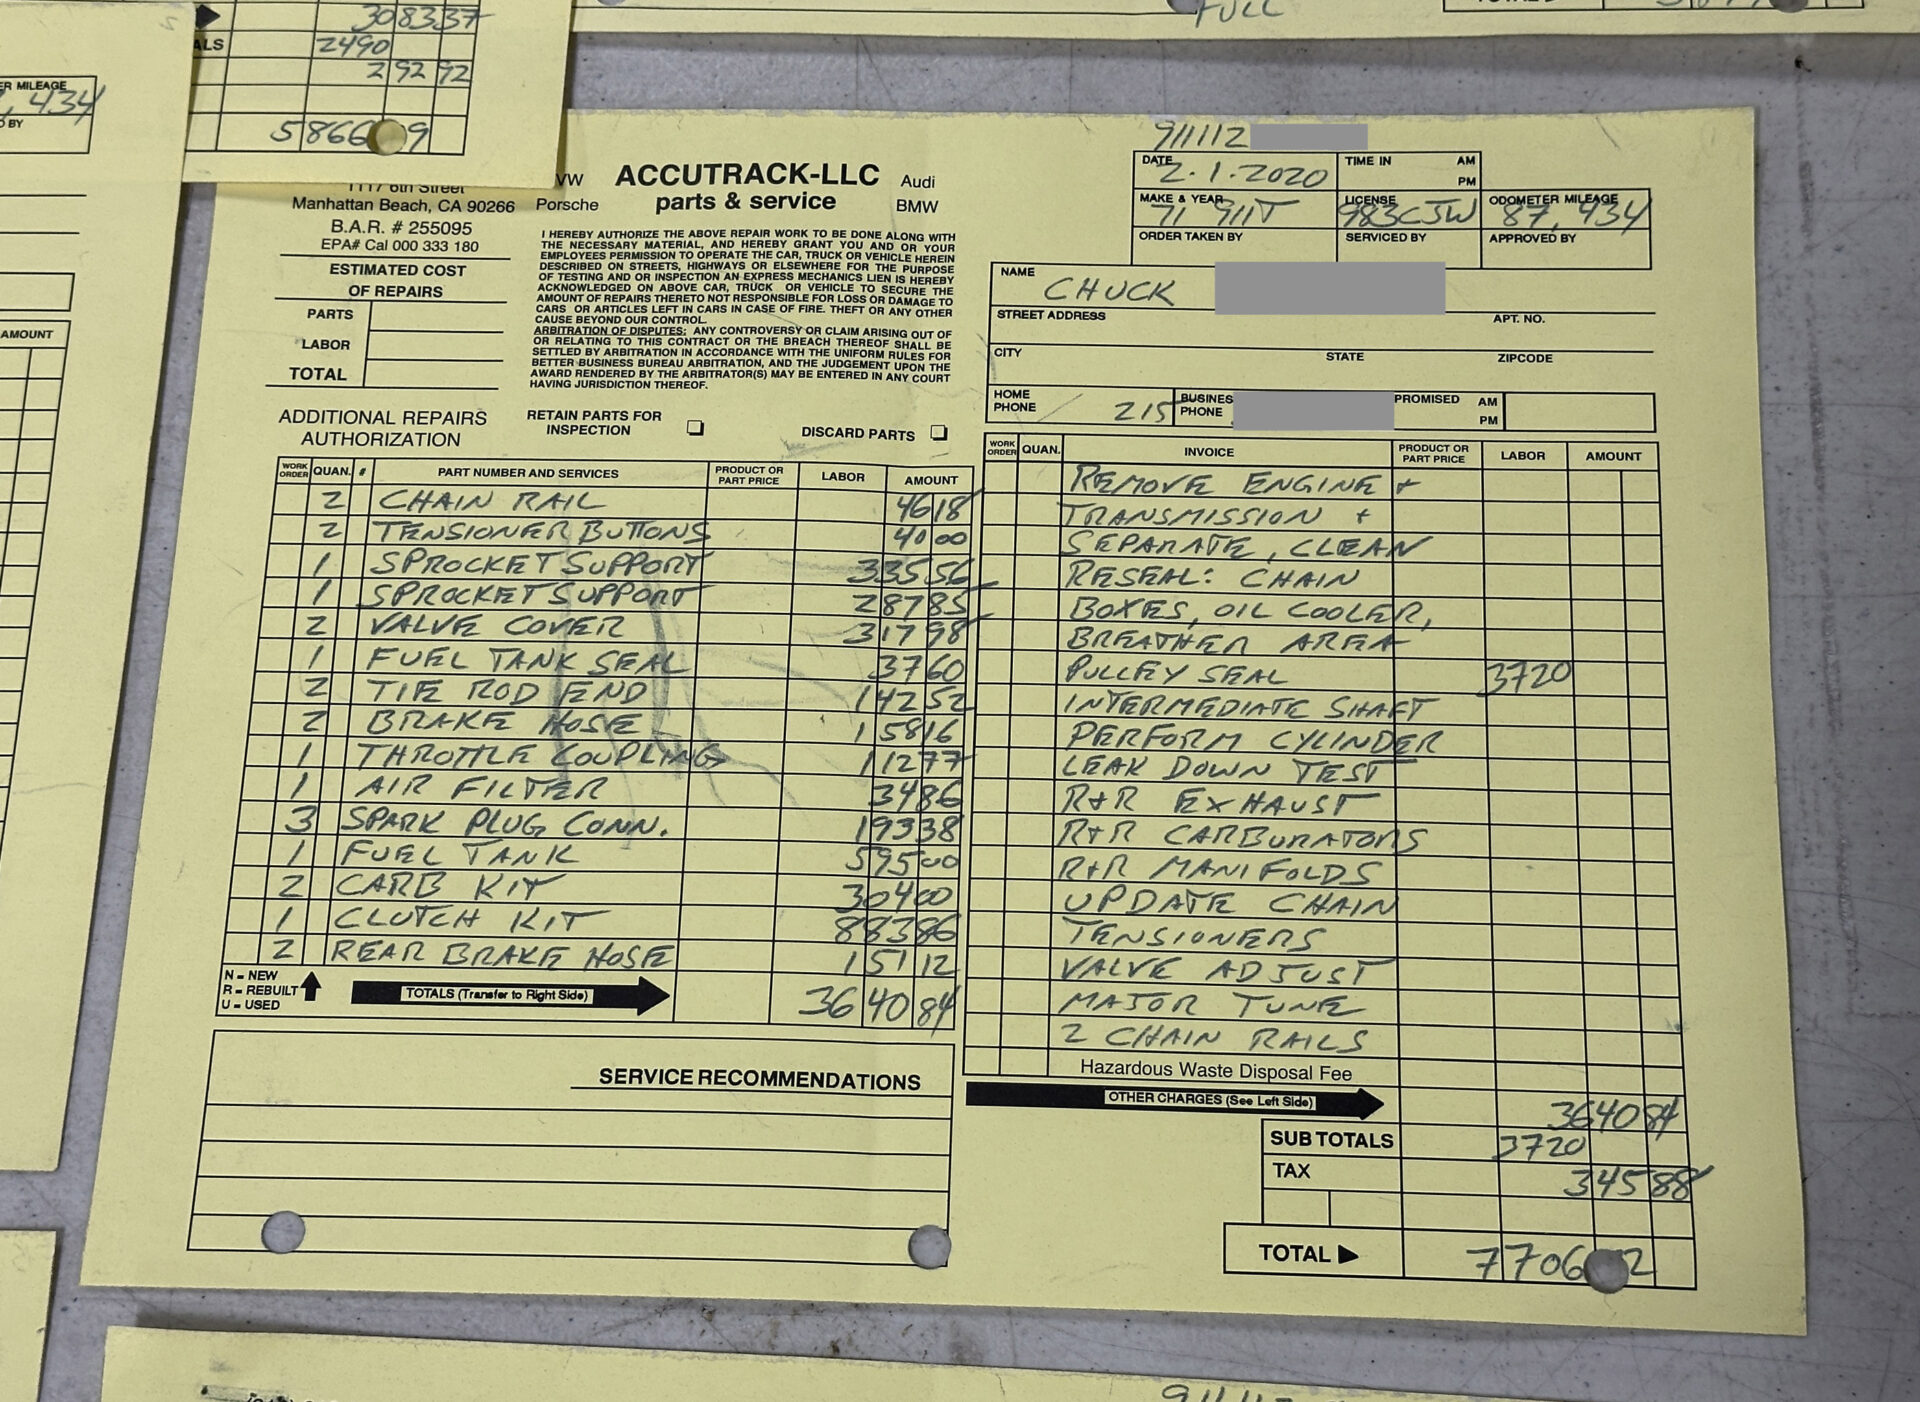 308337
ALS 2490
292 92
ER MILEAGE
, 434
D BY
AMOUNT
FULL
911112
1117 6th Street
Manhattan Beach, CA 90266
B.A.R. # 255095
EPA# Cal 000 333 180
VW ACCUTRACK-LLC Audi
Porsche parts & service BMW
I HEREBY AUTHORIZE THE ABOVE REPAIR WORK TO BE DONE ALONG WITH
THE NECESSARY MATERIAL, AND HEREBY GRANT YOU AND OR YOUR
EMPLOYEES PERMISSION TO OPERATE THE CAR, TRUCK OR VEHICLE HEREIN
DESCRIBED ON STREETS, HIGHWAYS OR ELSEWHERE FOR THE PURPOSE
OF TESTING AND OR INSPECTION AN EXPRESS MECHANICS LIEN IS HEREBY
ACKNOWLEDGED ON ABOVE CAR, TRUCK OR VEHICLE TO SECURE THE
AMOUNT OF REPAIRS THERETO NOT RESPONSIBLE FOR LOSS OR DAMAGE TO
CARS OR ARTICLES LEFT IN CARS IN CASE OF FIRE. THEFT OR ANY OTHER
CAUSE BEYOND OUR CONTROL.
ARBITRATION OF DISPUTES: ANY CONTROVERSY OR CLAIM ARISING OUT OF
OR RELATING TO THIS CONTRACT OR THE BREACH THEREOF SHALL BE
SETTLED BY ARBITRATION IN ACCORDANCE WITH THE UNIFORM RULES FOR
BETTER BUSINESS BUREAU ARBITRATION, AND THE JUDGEMENT UPON THE
AWARD RENDERED BY THE ARBITRATOR(S) MAY BE ENTERED IN ANY COURT
HAVING JURISDICTION THEREOF.
ESTIMATED COST
OF REPAIRS
PARTS
LABOR
TOTAL
ADDITIONAL REPAIRS
AUTHORIZATION
RETAIN PARTS FOR
INSPECTION
DISCARD PARTS
DATE 2.1.2020 TIME IN AM PM
MAKE & YEAR 71 911T LICENSE 983CJW ODOMETER MILEAGE 87,434
ORDER TAKEN BY SERVICED BY APPROVED BY
NAME CHUCK
STREET ADDRESS APT. NO.
CITY STATE ZIPCODE
HOME PHONE 215 BUSINES PHONE PROMISED AM PM
WORK ORDER QUAN. # PART NUMBER AND SERVICES PRODUCT OR PART PRICE LABOR AMOUNT
2 CHAIN RAIL 46 18
2 TENSIONER BUTTONS 40 00
1 SPROCKET SUPPORT 335 56
1 SPROCKET SUPPORT 287 85
2 VALVE COVER 317 98
1 FUEL TANK SEAL 37 60
2 TIE ROD END 142 52
2 BRAKE HOSE 158 16
1 THROTTLE COUPLING 112 77
1 AIR FILTER 34 86
3 SPARK PLUG CONN. 193 38
1 FUEL TANK 595 00
2 CARB KIT 304 00
1 CLUTCH KIT 883 86
2 REAR BRAKE HOSE 151 12
N - NEW
R - REBUILT
U - USED
TOTALS (Transfer to Right Side) 36 40 84
SERVICE RECOMMENDATIONS
WORK ORDER QUAN. INVOICE PRODUCT OR PART PRICE LABOR AMOUNT
REMOVE ENGINE +
TRANSMISSION +
SEPARATE, CLEAN
RESEAL: CHAIN
BOXES, OIL COOLER,
BREATHER AREA
PULLEY SEAL 3720
INTERMEDIATE SHAFT
PERFORM CYLINDER
LEAK DOWN TEST
R+R EXHAUST
R+R CARBURATORS
R+R MANIFOLDS
UPDATE CHAIN
TENSIONERS
VALVE ADJUST
MAJOR TUNE
2 CHAIN RAILS
Hazardous Waste Disposal Fee
OTHER CHARGES (See Left Side) 3640 84
SUB TOTALS 3720
TAX 345 88
TOTAL 7706 2